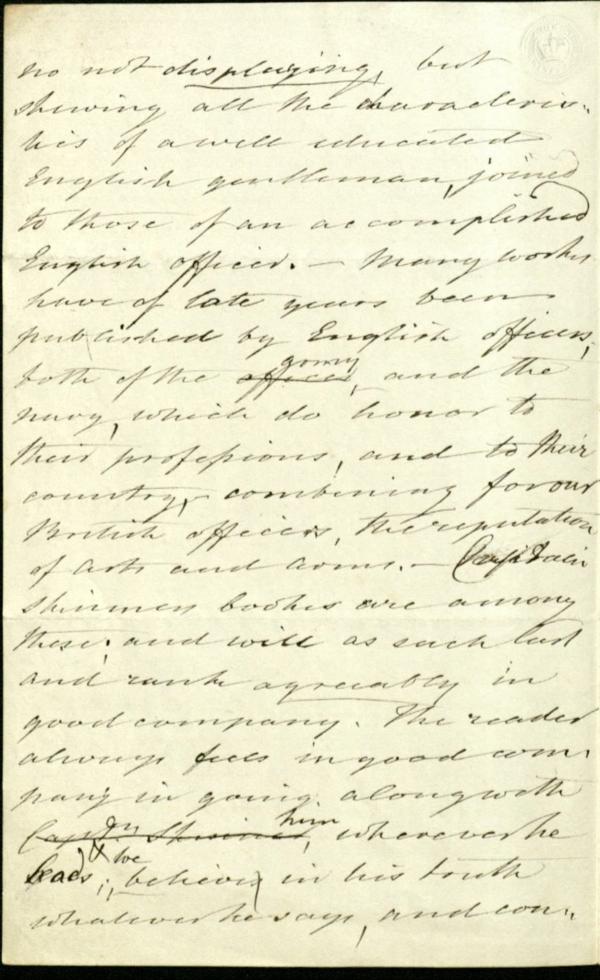 no not displaying, but
shewing all the characteris-
tics of a well educated
English gentleman, joined
to those of an accomplished
English officer. — Many works
have of late years been
published by English officers,
both of the officer, army and the
navy, which do honor to
their professions, and to their
country, combining for our
British officers, the reputation
of arts and arms. — Captain
Skinners books are among
these; and will as such last
and rank agreeably in
good company. The reader
always feels in good com-
pany in going along with
Captn. Skinner, him wherever he
leads; & we believes in his truth
whatever he says, and con-